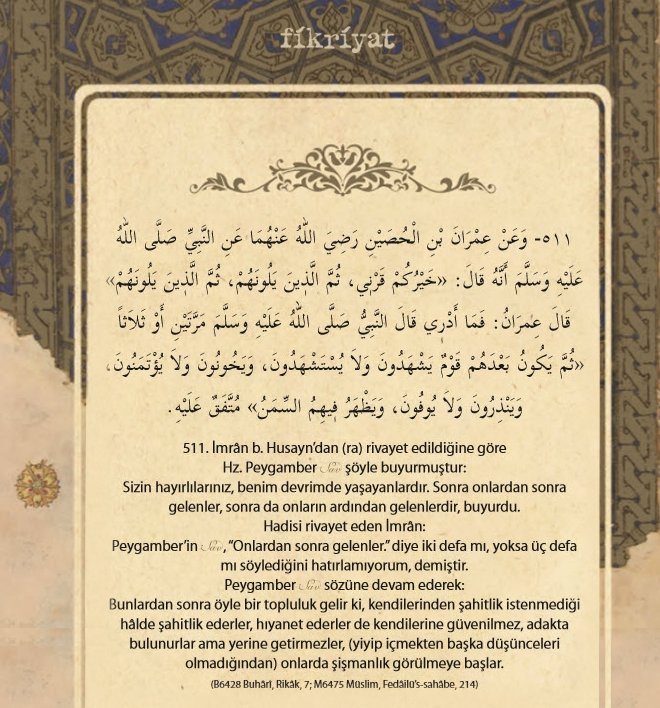 fikriyat
٥١١- وَعَنْ عِمْرَانَ بْنِ الْحُصَيْنِ رَضِيَ اللّٰهُ عَنْهُمَا عَنِ النَّبِيِّ صَلَّى اللّٰهُ
عَلَيْهِ وَسَلَّمَ أَنَّهُ قَالَ: «خَيْرُكُمْ قَرْنِي، ثُمَّ الَّذِينَ يَلُونَهُمْ، ثُمَّ الَّذِينَ يَلُونَهُمْ»
قَالَ عِمْرَانُ: فَمَا أَدْرِي قَالَ النَّبِيُّ صَلَّى اللّٰهُ عَلَيْهِ وَسَلَّمَ مَرَّتَيْنِ أَوْ ثَلَاثاً
«ثُمَّ يَكُونُ بَعْدَهُمْ قَوْمٌ يَشْهَدُونَ وَلَا يُسْتَشْهَدُونَ، وَيَخُونُونَ وَلَا يُؤْتَمَنُونَ،
وَيَنْذِرُونَ وَلَا يُوفُونَ، وَيَظْهَرُ فِيهِمُ السِّمَنُ» مُتَّفَقٌ عَلَيْهِ.
511. İmrân b. Husayn’dan (ra) rivayet edildiğine göre
Hz. Peygamber sav şöyle buyurmuştur:
Sizin hayırlılarınız, benim devrimde yaşayanlardır. Sonra onlardan sonra
gelenler, sonra da onların ardından gelenlerdir, buyurdu.
Hadisi rivayet eden İmrân:
Peygamber’in sav, “Onlardan sonra gelenler.” diye iki defa mı, yoksa üç defa
mı söylediğini hatırlamıyorum, demiştir.
Peygamber sav sözüne devam ederek:
Bunlardan sonra öyle bir topluluk gelir ki, kendilerinden şahitlik istenmediği
hâlde şahitlik ederler, hıyanet ederler de kendilerine güvenilmez, adakta
bulunurlar ama yerine getirmezler, (yiyip içmekten başka düşünceleri
olmadığından) onlarda şişmanlık görülmeye başlar.
(B6428 Buhârî, Rikâk, 7; M6475 Müslim, Fedâilü’s-sahâbe, 214)